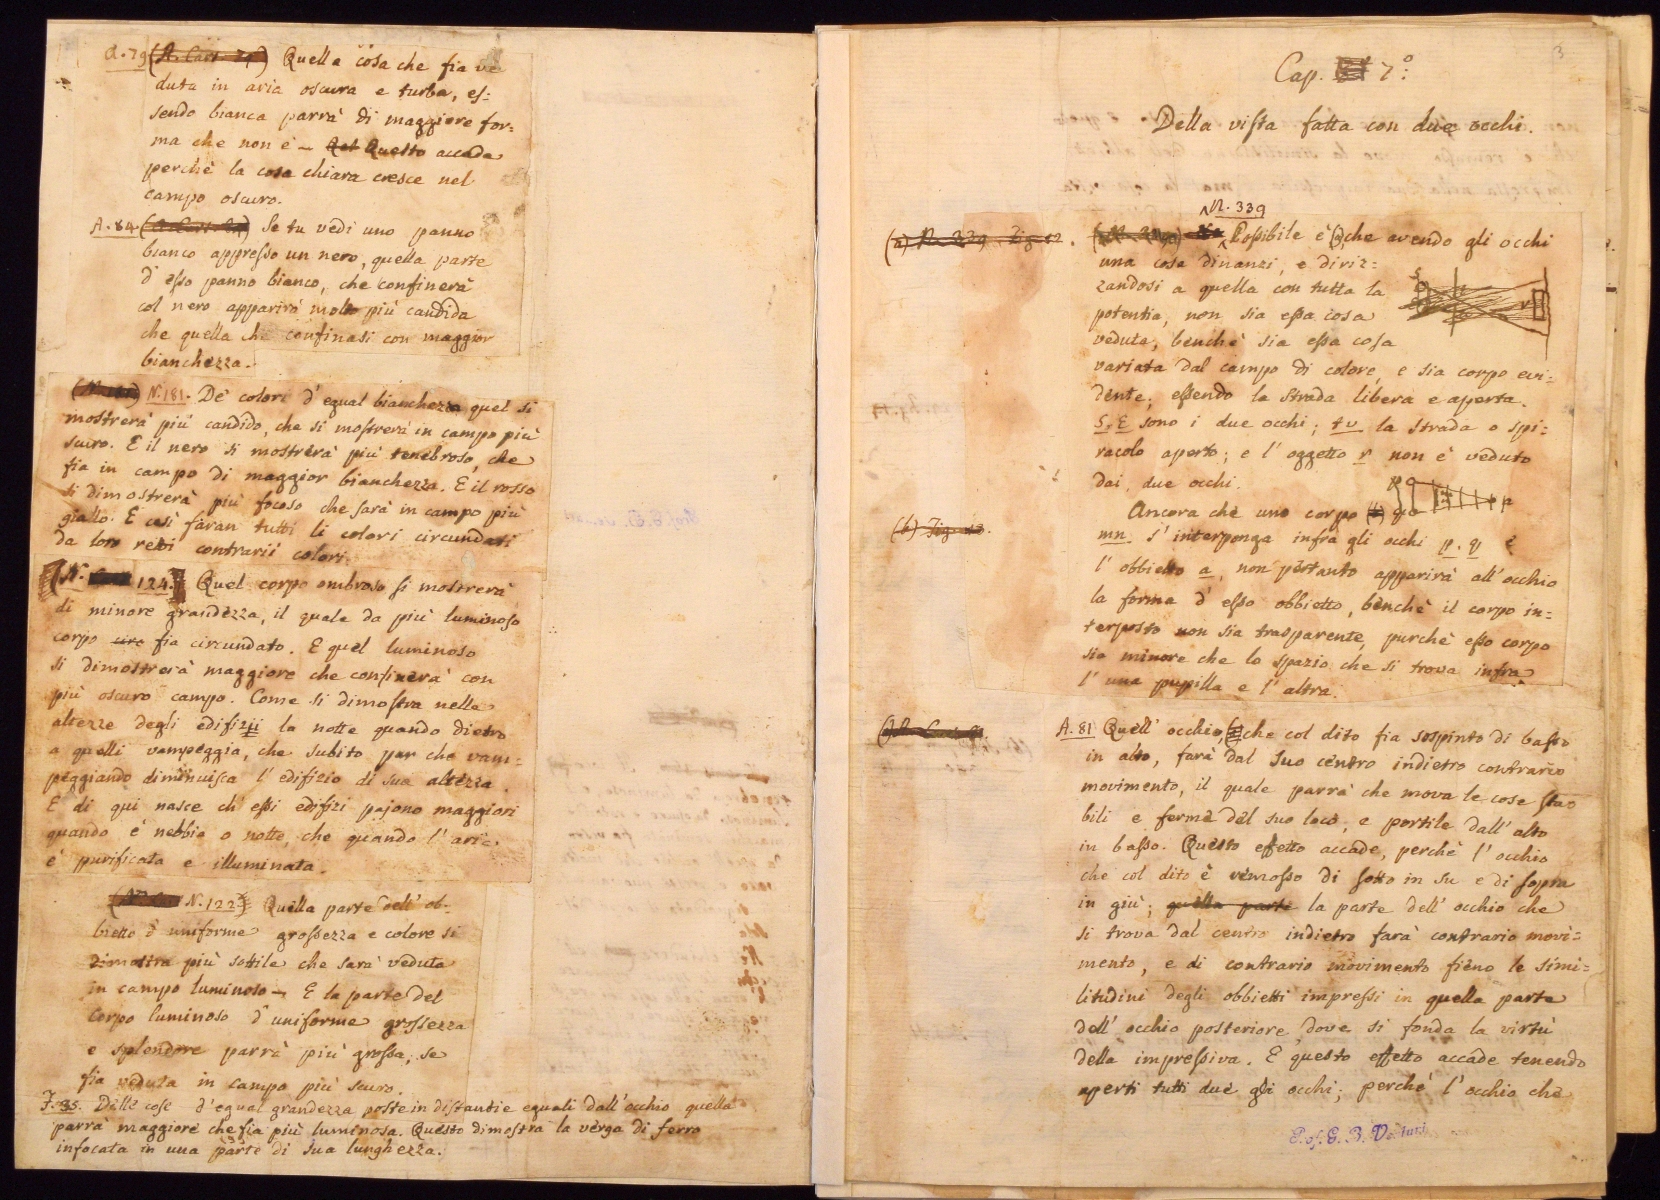 A. 79 (A. Cart. 79) Quella cosa che fia ve
duta in aria oscura e turba, es:
sendo bianca parrà di maggiore for:
ma che non è – Questo accade
perchè la cosa chiara cresce nel
campo oscuro.
A. 84 Se tu vedi uno panno
bianco appresso un nero, quella parte
d' esso panno bianco, che confinerà
col nero apparirà molto più candida
che quella che confinasi con maggior
bianchezza.
N. 181. De' colori d' egual bianchezza quel si
mostrerà più candido, che si mostrerà in campo più
scuro. E il nero si mostrerà più tenebroso, che
fia in campo di maggior bianchezza. E il rosso
si dimostrerà più focoso che sarà in campo più
giallo. E così faran tutti li colori circundati
da loro retti contrarii colori.
N. 124. Quel corpo ombroso si mostrerà
di minore grandezza, il quale da più luminoso
corpo circ fia circundato. E quel luminoso
si dimostrerà maggiore che confinerà con
più oscuro campo. Come si dimostra nelle
altezze degli edifizii la notte quando dietro
a quelli vampeggia, che subito par che vam-
peggiando diminuisca l' edifizio di sua altezza.
E di qui nasce ch' essi edifizi pajono maggiori
quando è nebbia o notte, che quando l' aria
è purificata e illuminata.
N. 122 Quella parte dell' ob-
bietto d' uniforme grossezza e colore si
dimostra più sottile che sarà veduta
in campo luminoso – E la parte del
corpo luminoso d' uniforme grossezza
e splendore parrà più grossa, se
fia veduta in campo più scuro.
F. 35. Delle cose d' egual grandezza poste in distantie equali dall' occhio quella
parrà maggiore che fia più luminosa. Questo dimostra la verga di ferro
infocata in una parte di sua lunghezza.
3
Cap. 7º:
Della vista fatta con due occhi.
N. 339
(a) N. 339 Fig. 12. Possibile è (a) che avendo gli occhi
una cosa dinanzi, e diriz:
zandosi a quella con tutta la
potentia, non sia essa cosa
veduta, benchè sia essa cosa
variata dal campo di colore, e sia corpo evi:
dente; essendo la strada libera e aperta.
S. E sono i due occhi; t v. la strada o spi:
racolo aperto; e l' oggetto r non è veduto
dai due occhi.
Ancora che uno corpo (b)
(b) Fig. 13.
mn. s' interponga infra gli occhi p. q e
l' obbietto a, non pertanto apparirà all' occhio
la forma d' esso obbietto, benchè il corpo in:
terposto non sia trasparente, purchè esso corpo
sia minore che lo spazio che si trova infra
l' una pupilla e l' altra.
A. 81 Quell' occhio, che col dito fia sospinto di basso
in alto, farà dal suo centro indietro contrario
movimento, il quale parrà che mova le cose sta:
bili e ferme del suo loco, e portile dall' alto
in basso. Questo effetto accade, perchè l' occhio
che col dito è remosso di sotto in su e di sopra
in giù; quella parte la parte dell' occhio che
si trova dal centro indietro farà contrario movi:
mento, e di contrario movimento fieno le simi:
litudini degli obbietti impressi in quella parte
dell' occhio posteriore dove si fonda la virtù
della impressiva. E questo effetto accade tenendo
aperti tutti due gli occhi; perchè l' occhio che
Prof. G. B. Venturi